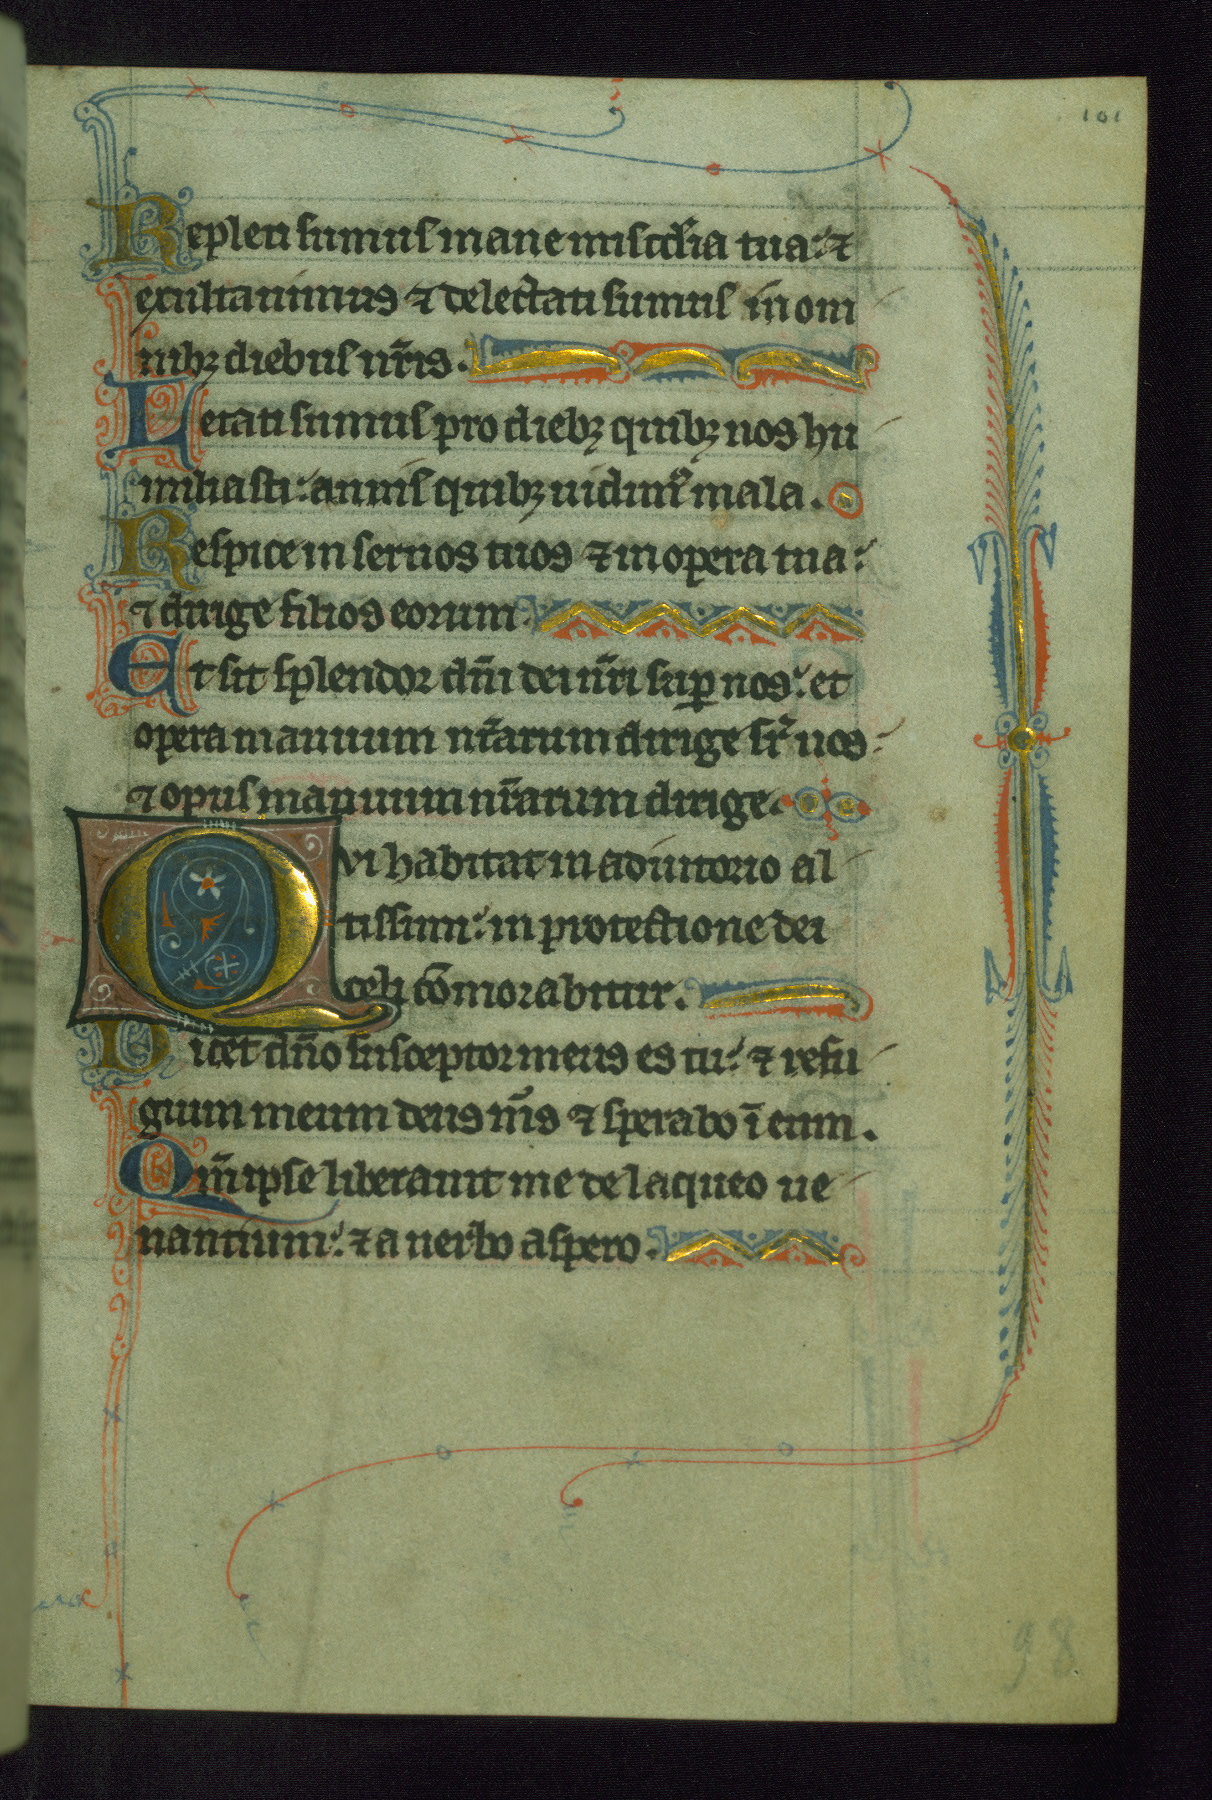 101
Repleti sumus mane misc̄dia tua: ⁊
exultauimus ⁊ delectati sumus in om
nibꝫ diebus nr̄is.
Letati sumus pro diebꝫ quibꝫ nos hu
miliasti: annis quibꝫ uidim᷒ mala.
Respice in seruos tuos ⁊ in opera tua:
⁊ dirige filios eorum.
Et sit splendor dn̄i dei nr̄i suꝑ nos: et
opera manuum nr̄arum dirige sr̄ nos:
⁊ opus manuum nr̄arum dirige.
Qvi habitat in adiutorio al
tissimi: in protectione dei
celi cōmorabitur.
Dicet dn̄o susceptor meus es tu: ⁊ refu
gium meum deus ms̄ ⁊ sperabo ī eum.
Qm̄ ipse liberauit me de laqueo ue
nantium: ⁊ a uerbo aspero.
98